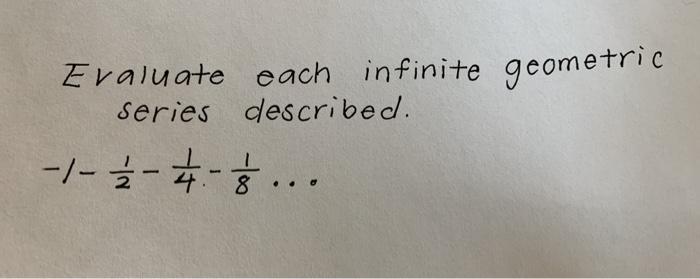 Evaluate each infinite geometric
series described.
-1- 1/2 - 1/4 - 1/8 ...